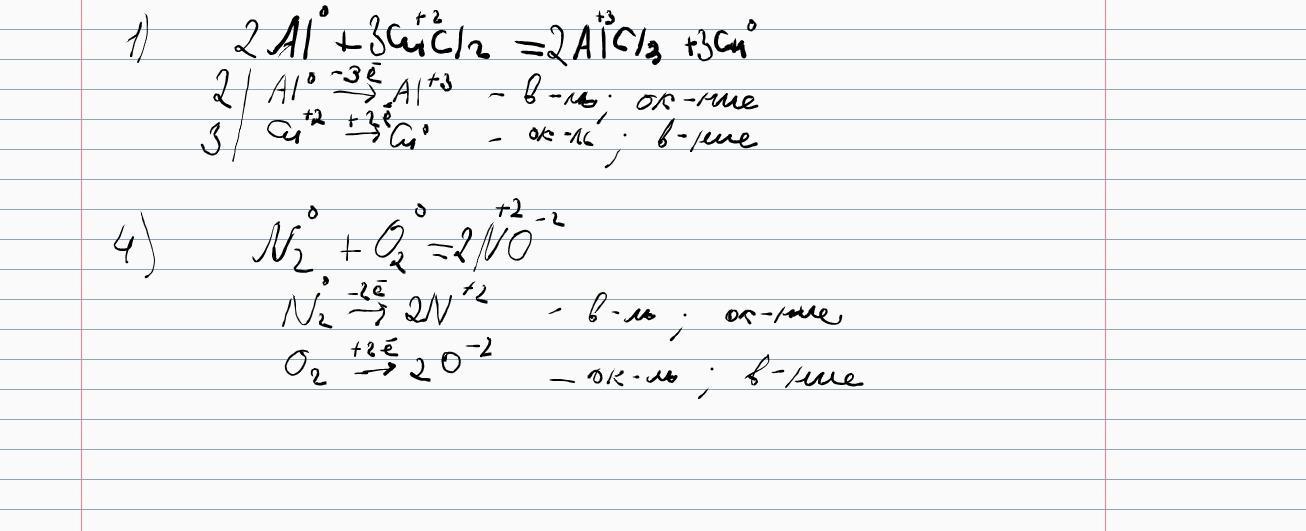 1) 2Al⁰ + 3Cu⁺²Cl₂ = 2Al⁺³Cl₃ + 3Cu⁰
2| Al⁰ −3ē → Al⁺³ - в-ль; ок-ние
3| Cu⁺² +2ē → Cu⁰ - ок-ль; в-ние
4) N₂⁰ + O₂⁰ = 2N⁺²O⁻²
N₂⁰ −2ē → 2N⁺² - в-ль; ок-ние
O₂ +2ē → 2O⁻² - ок-ль; в-ние